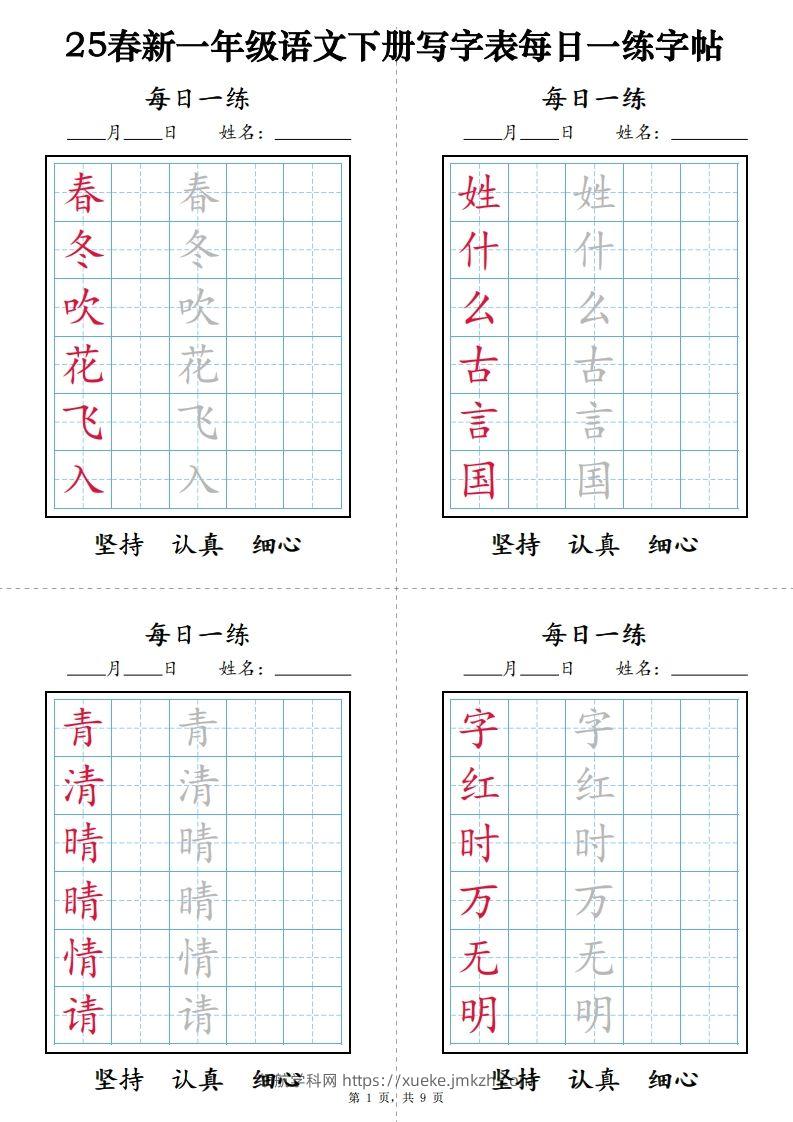 25春新一年级语文下册写字表每日一练字帖
每日一练
____月____日 姓名：________
春 春
冬 冬
吹 吹
花 花
飞 飞
入 入
坚持 认真 细心
每日一练
____月____日 姓名：________
姓 姓
什 什
么 么
古 古
言 言
国 国
坚持 认真 细心
每日一练
____月____日 姓名：________
青 青
清 清
晴 晴
睛 睛
情 情
请 请
坚持 认真 细心
每日一练
____月____日 姓名：________
字 字
红 红
时 时
万 万
无 无
明 明
坚持 认真 细心
航学科网 https://xueke.jmkzh
第 1 页，共 9 页